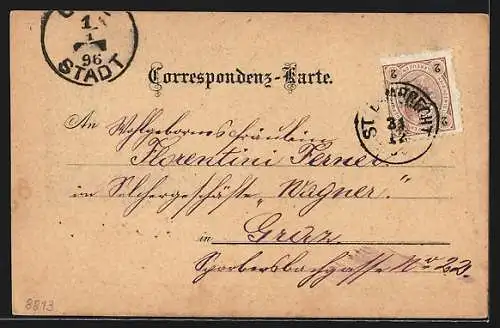 1
1
96
STADT
Correspondenz-Karte.
2
2
ST. LAMBRECHT
31
12
An Wohlgebornes Fräulein
Florentini Ferner
im Selchergeschäfte „Wagner.“
in Graz.
Sporbersbachgasse No 22.
8813